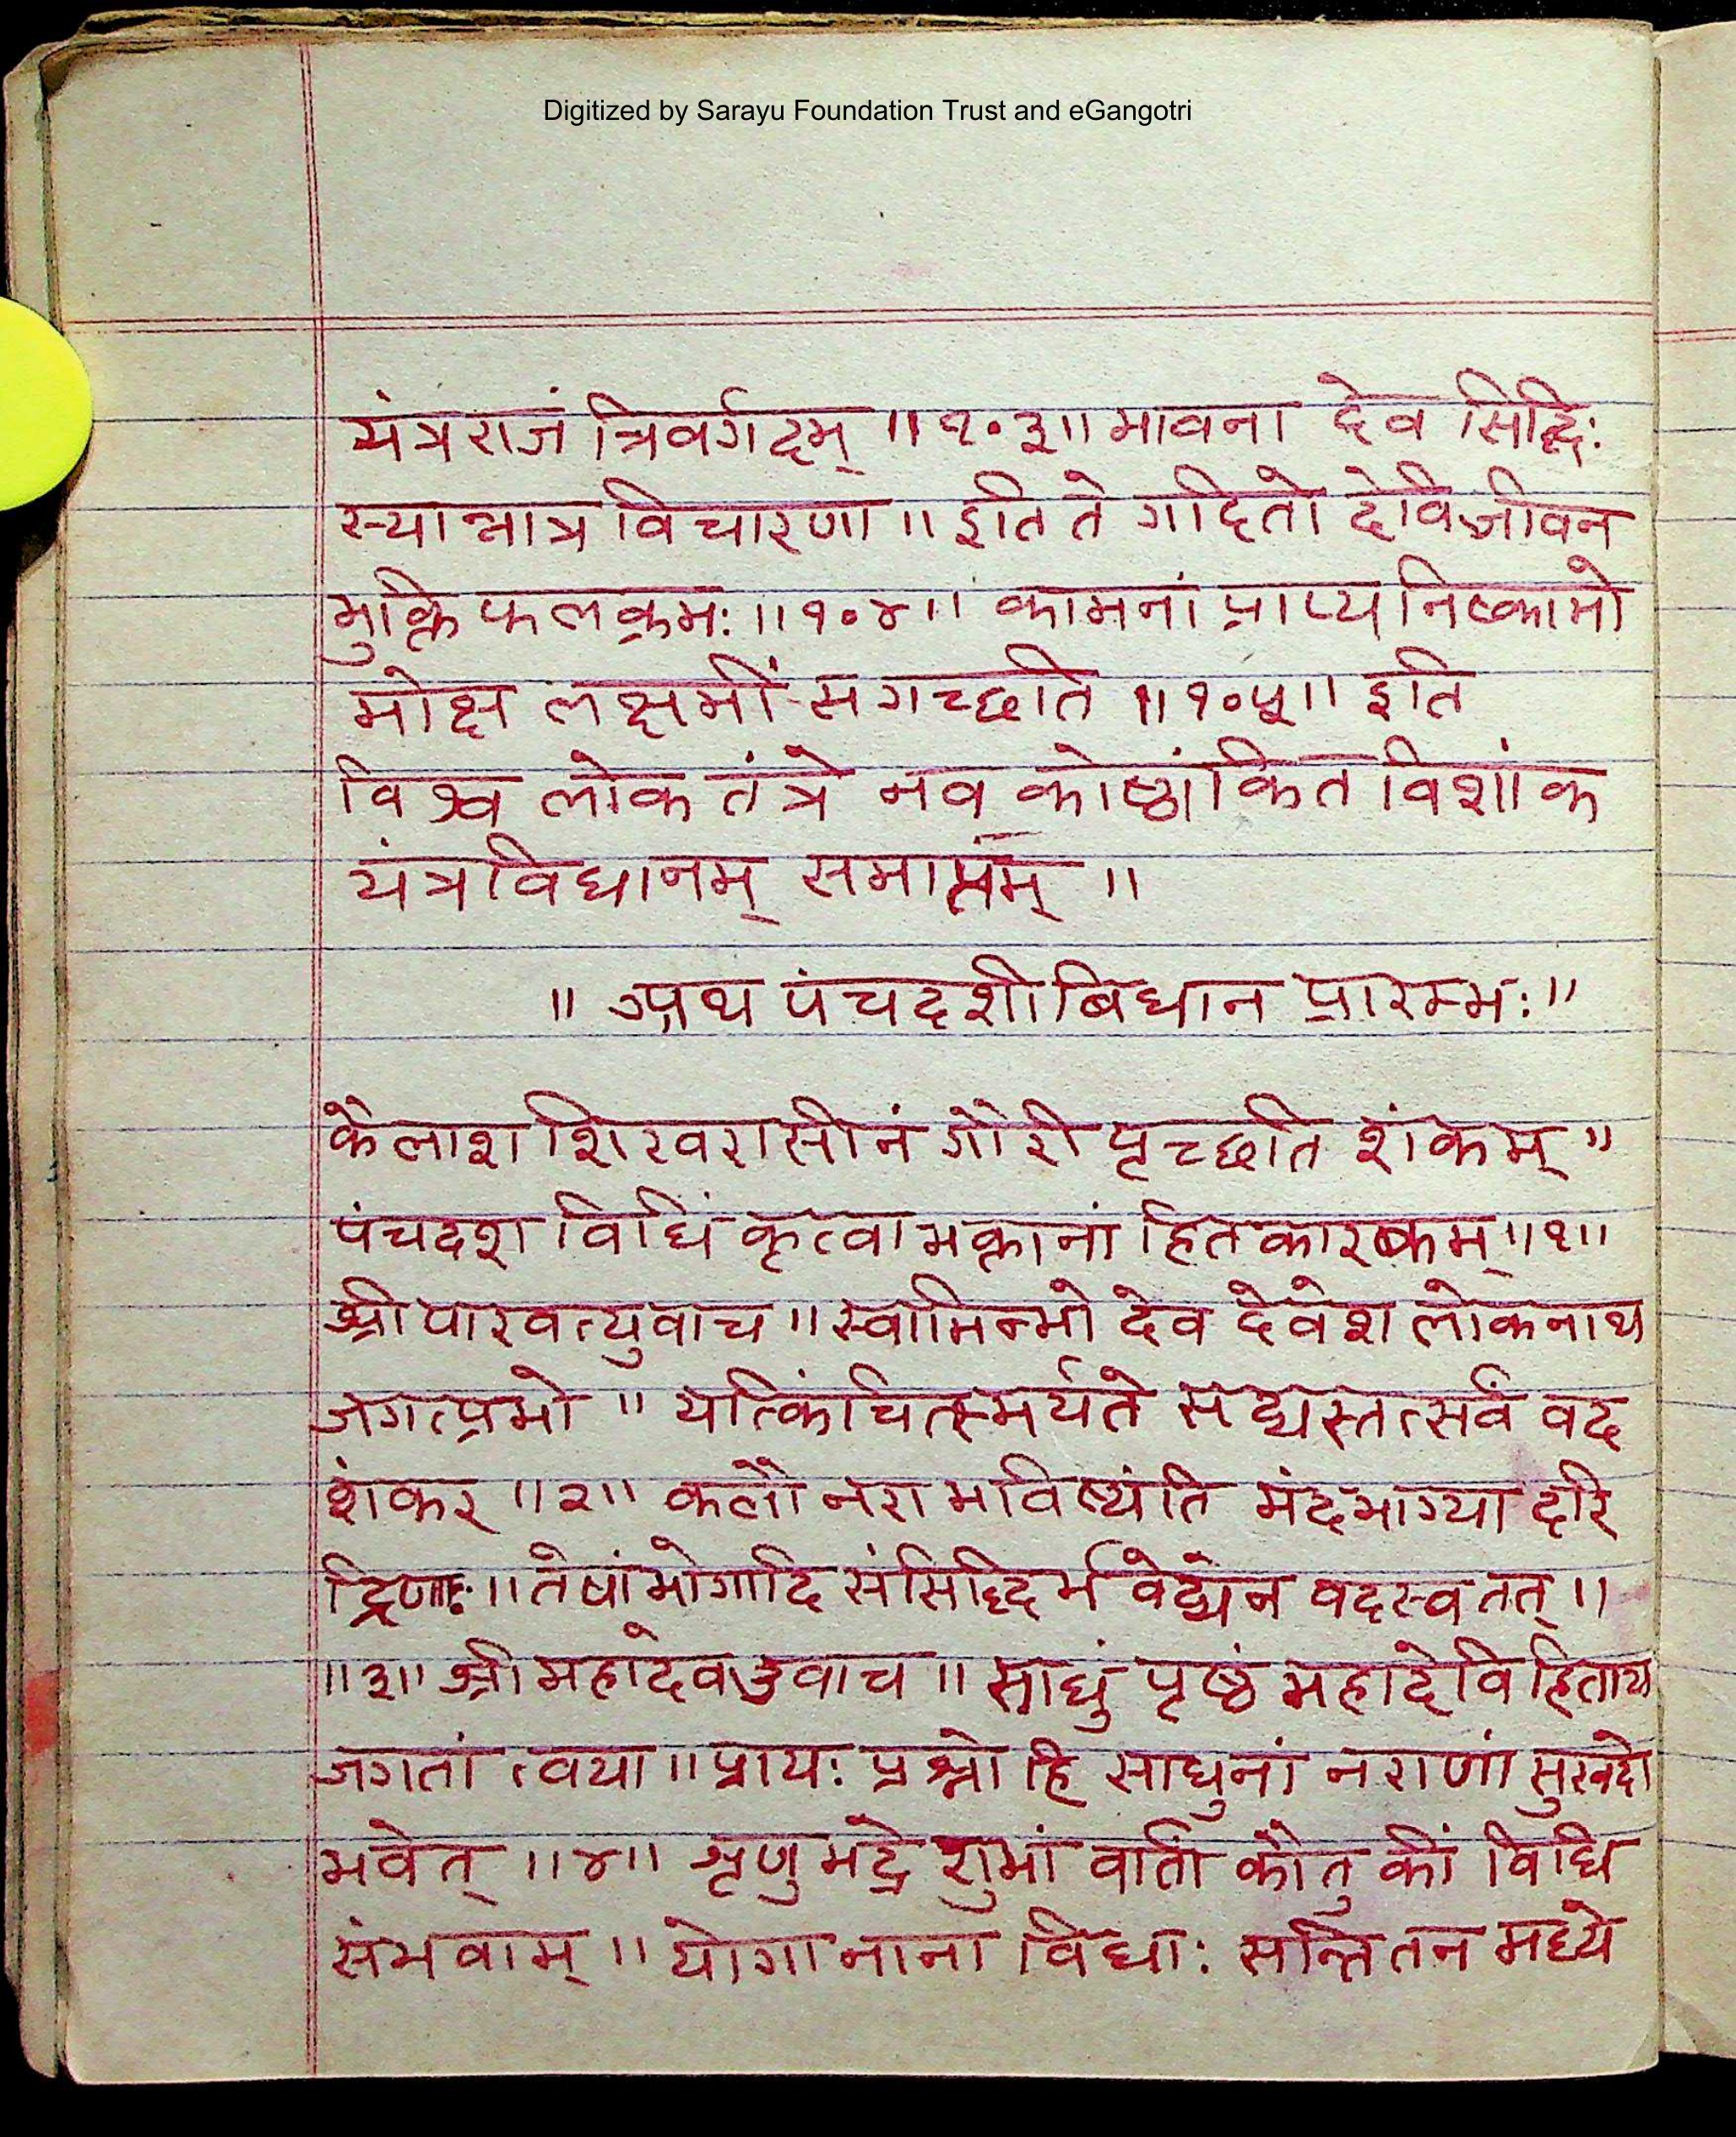 Digitized by Sarayu Foundation Trust and eGangotri
यंत्रराजं त्रिवर्गदम् ॥१०३॥ भावना देव सिद्धिः
स्यान्नात्र विचारणा ॥ इति ते गदितो देवि जीवन
मुक्ति फलक्रमः ॥१०४॥ कामनां प्राप्य निष्कामो
मोक्ष लक्षमीं स गच्छति ॥१०५॥ इति
विश्व लोक तंत्रे नव कोष्ठांकित विशांक
यंत्रविधानम् समाप्तम् ॥
॥ अथ पंचदशी बिधान प्रारम्भः ॥
कैलाश शिखरासीनं गौरी पृच्छति शंकम् ॥
पंचदश विधिं कृत्वा भक्तानां हितकारकम् ॥१॥
श्री पारवत्युवाच ॥ स्वामिन्भो देव देवेश लोकनाथ
जगत्प्रभो ॥ यत्किंचित्स्मर्यते सद्यस्तत्सर्वं वद
शंकर ॥२॥ कलौ नरा भविष्यंति मंदभाग्या दरि
द्रिणः ॥ तेषां भोगादि संसिद्दिर्भवेद्येन वदस्व तत् ॥
॥३॥ श्री महादेव उवाच ॥ साधुं पृष्ठं महादेवि हिताय
जगतां त्वया ॥ प्रायः प्रश्नो हि साधुनां नराणां सुखदो
भवेत् ॥४॥ शृणु भद्रे शुभां वार्तां कौतुकीं विधि
संभवाम् ॥ योगा नाना विधाः सन्ति तन मध्ये